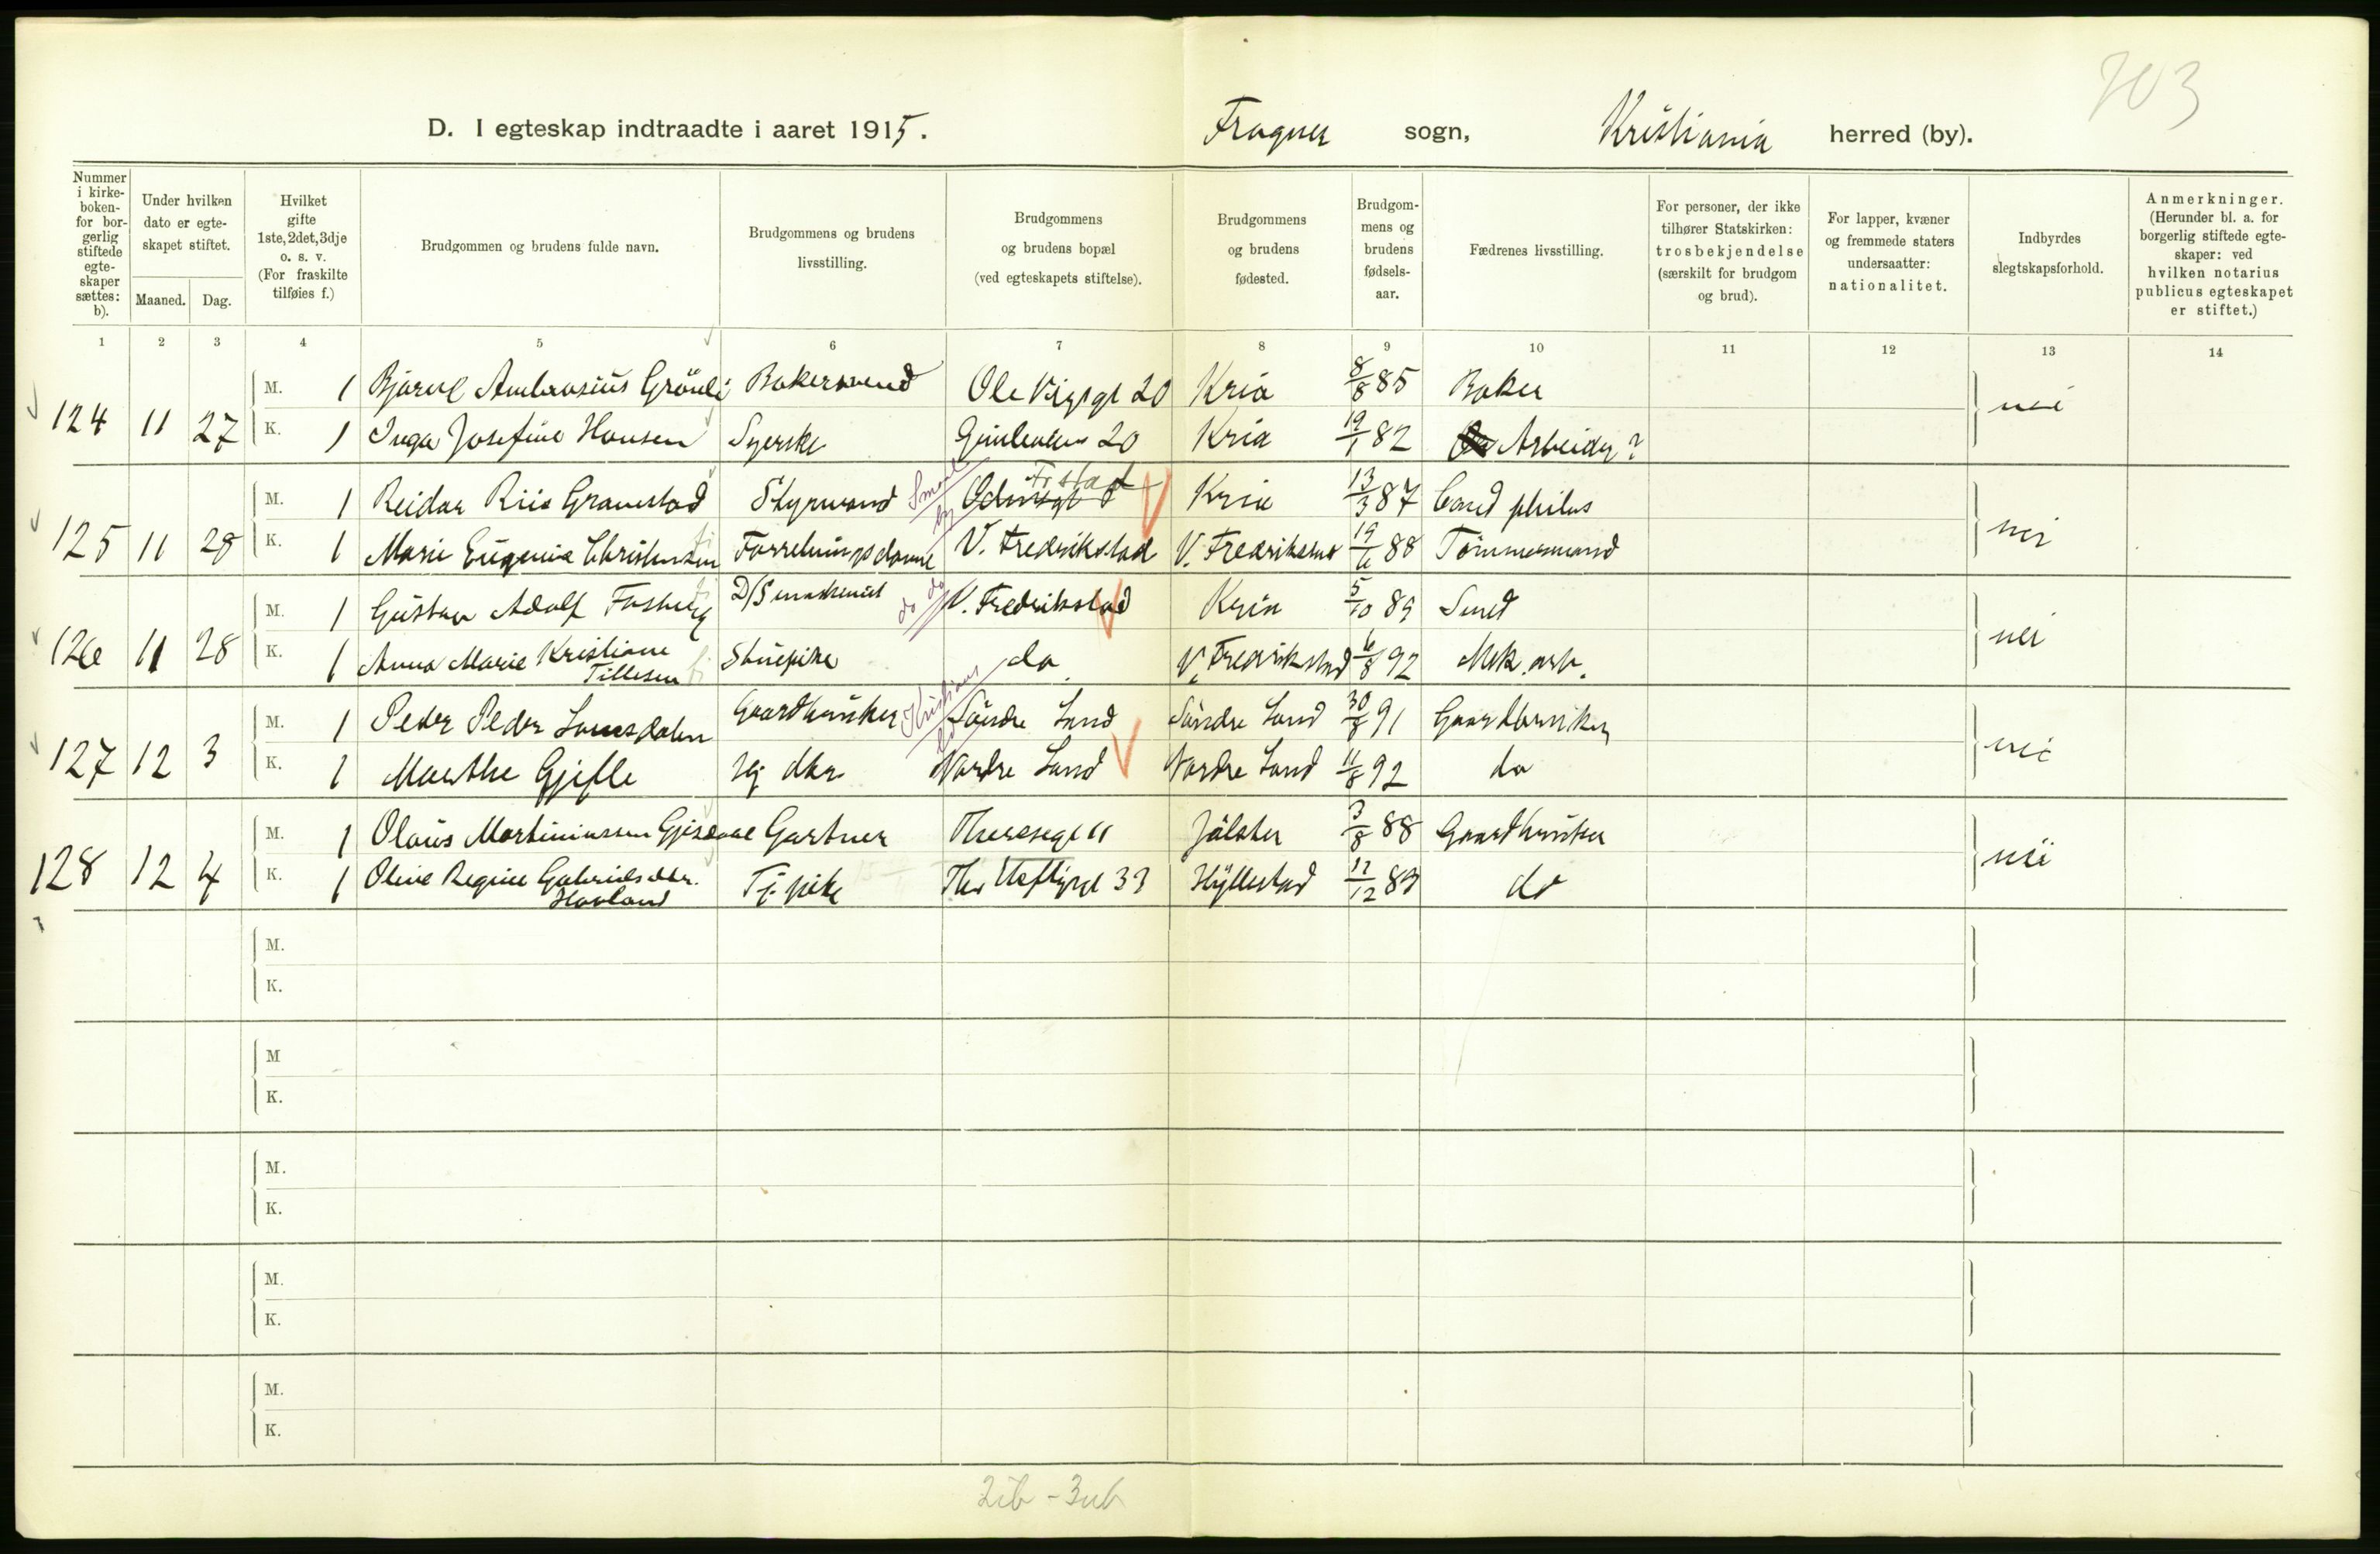 703
D. I egteskap indtraadte i aaret 1915. Frogner sogn, Kristiania herred (by).
Nummer i kirkeboken for borgerlig stiftede egteskaper sættes: b).
Under hvilken dato er egteskapet stiftet.
Maaned. Dag.
Hvilket gifte 1ste, 2det, 3dje o. s. v. (For fraskilte tilføies f.)
Brudgommen og brudens fulde navn.
Brudgommens og brudens livsstilling.
Brudgommens og brudens bopæl (ved egteskapets stiftelse).
Brudgommens og brudens fødested.
Brudgommens og brudens fødselsaar.
Fædrenes livsstilling.
For personer, der ikke tilhører Statskirken: trosbekjendelse (særskilt for brudgom og brud).
For lapper, kvæner og fremmede staters undersaatter: nationalitet.
Indbyrdes slegtskapsforhold.
Anmerkninger. (Herunder bl. a. for borgerlig stiftede egteskaper: ved hvilken notarius publicus egteskapet er stiftet.)
1 2 3 4 5 6 7 8 9 10 11 12 13 14
M. 1 Bjarne Ambrosius Grönli Bakersvend Ole Vigsgt 20 Kria 8/8 85 Baker
124 11 27 nei
K. 1 Inga Josefine Hansen Syerske Gimleveien 20 Kria 19/1 82 Arbeider?
M. 1 Reidar Riis Gramstad Styrmand Frstad Kria 13/3 87 Cand philos
125 11 28 nei
K. 1 Marie Eugenie Christensen Forretningsdame V. Fredrikstad V. Fredrikstad 19/6 88 Tömmermand
M. 1 Gustav Adolf Fosberg D/S maskinist do do V. Fredrikstad Kria 5/10 89 Smed
126 11 28 nei
K. 1 Anna Marie Kristiane Tillesen Stuepike do. V. Fredrikstad 6/8 92 Mek. arb.
M. 1 Peder Peder Gaardbruker Kristians Söndre Land Söndre Land 30/8 91 Gaardbruker
127 12 3 nei
K. 1 Marthe Gjefle Nordre Land Nordre Land 11/8 92 do
M. 1 Olaus Martiniussen Gartner Theresegt 11 Jölster 3/8 88 Gaardbruker
128 12 4 nei
K. 1 Oline Regine Gabrielsdtr. Hovland Tj. pike Ths Heftyesgt 33 Hyllestad 12/12 83 do
M.
K.
M
K.
M.
K.
M.
K.
M.
K.
2ib - 3ub